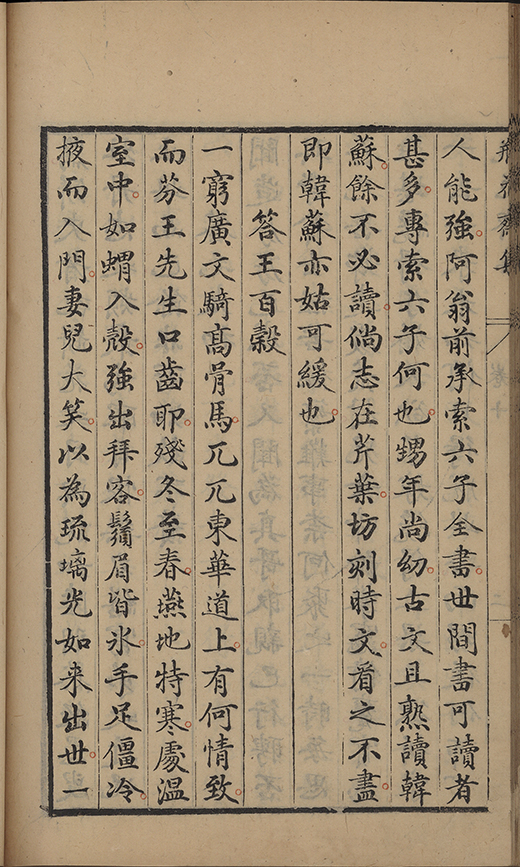 瓶花齋集
卷十
人能強阿翁前承索六子全書世間書可讀者
甚多專索六子何也甥年尚幼古文且熟讀韓
蘇餘不必讀倘志在芹葉坊刻時文看之不盡
即韓蘇亦姑可緩也
答王百穀
一窮廣文騎高骨馬兀兀東華道上有何情致
而芬王先生口齒耶殘冬至春燕地特寒處温
室中如蝟入殼強出拜客鬚眉皆氷手足僵冷
掖而入門妻兒大笑以為琉璃光如来出世一